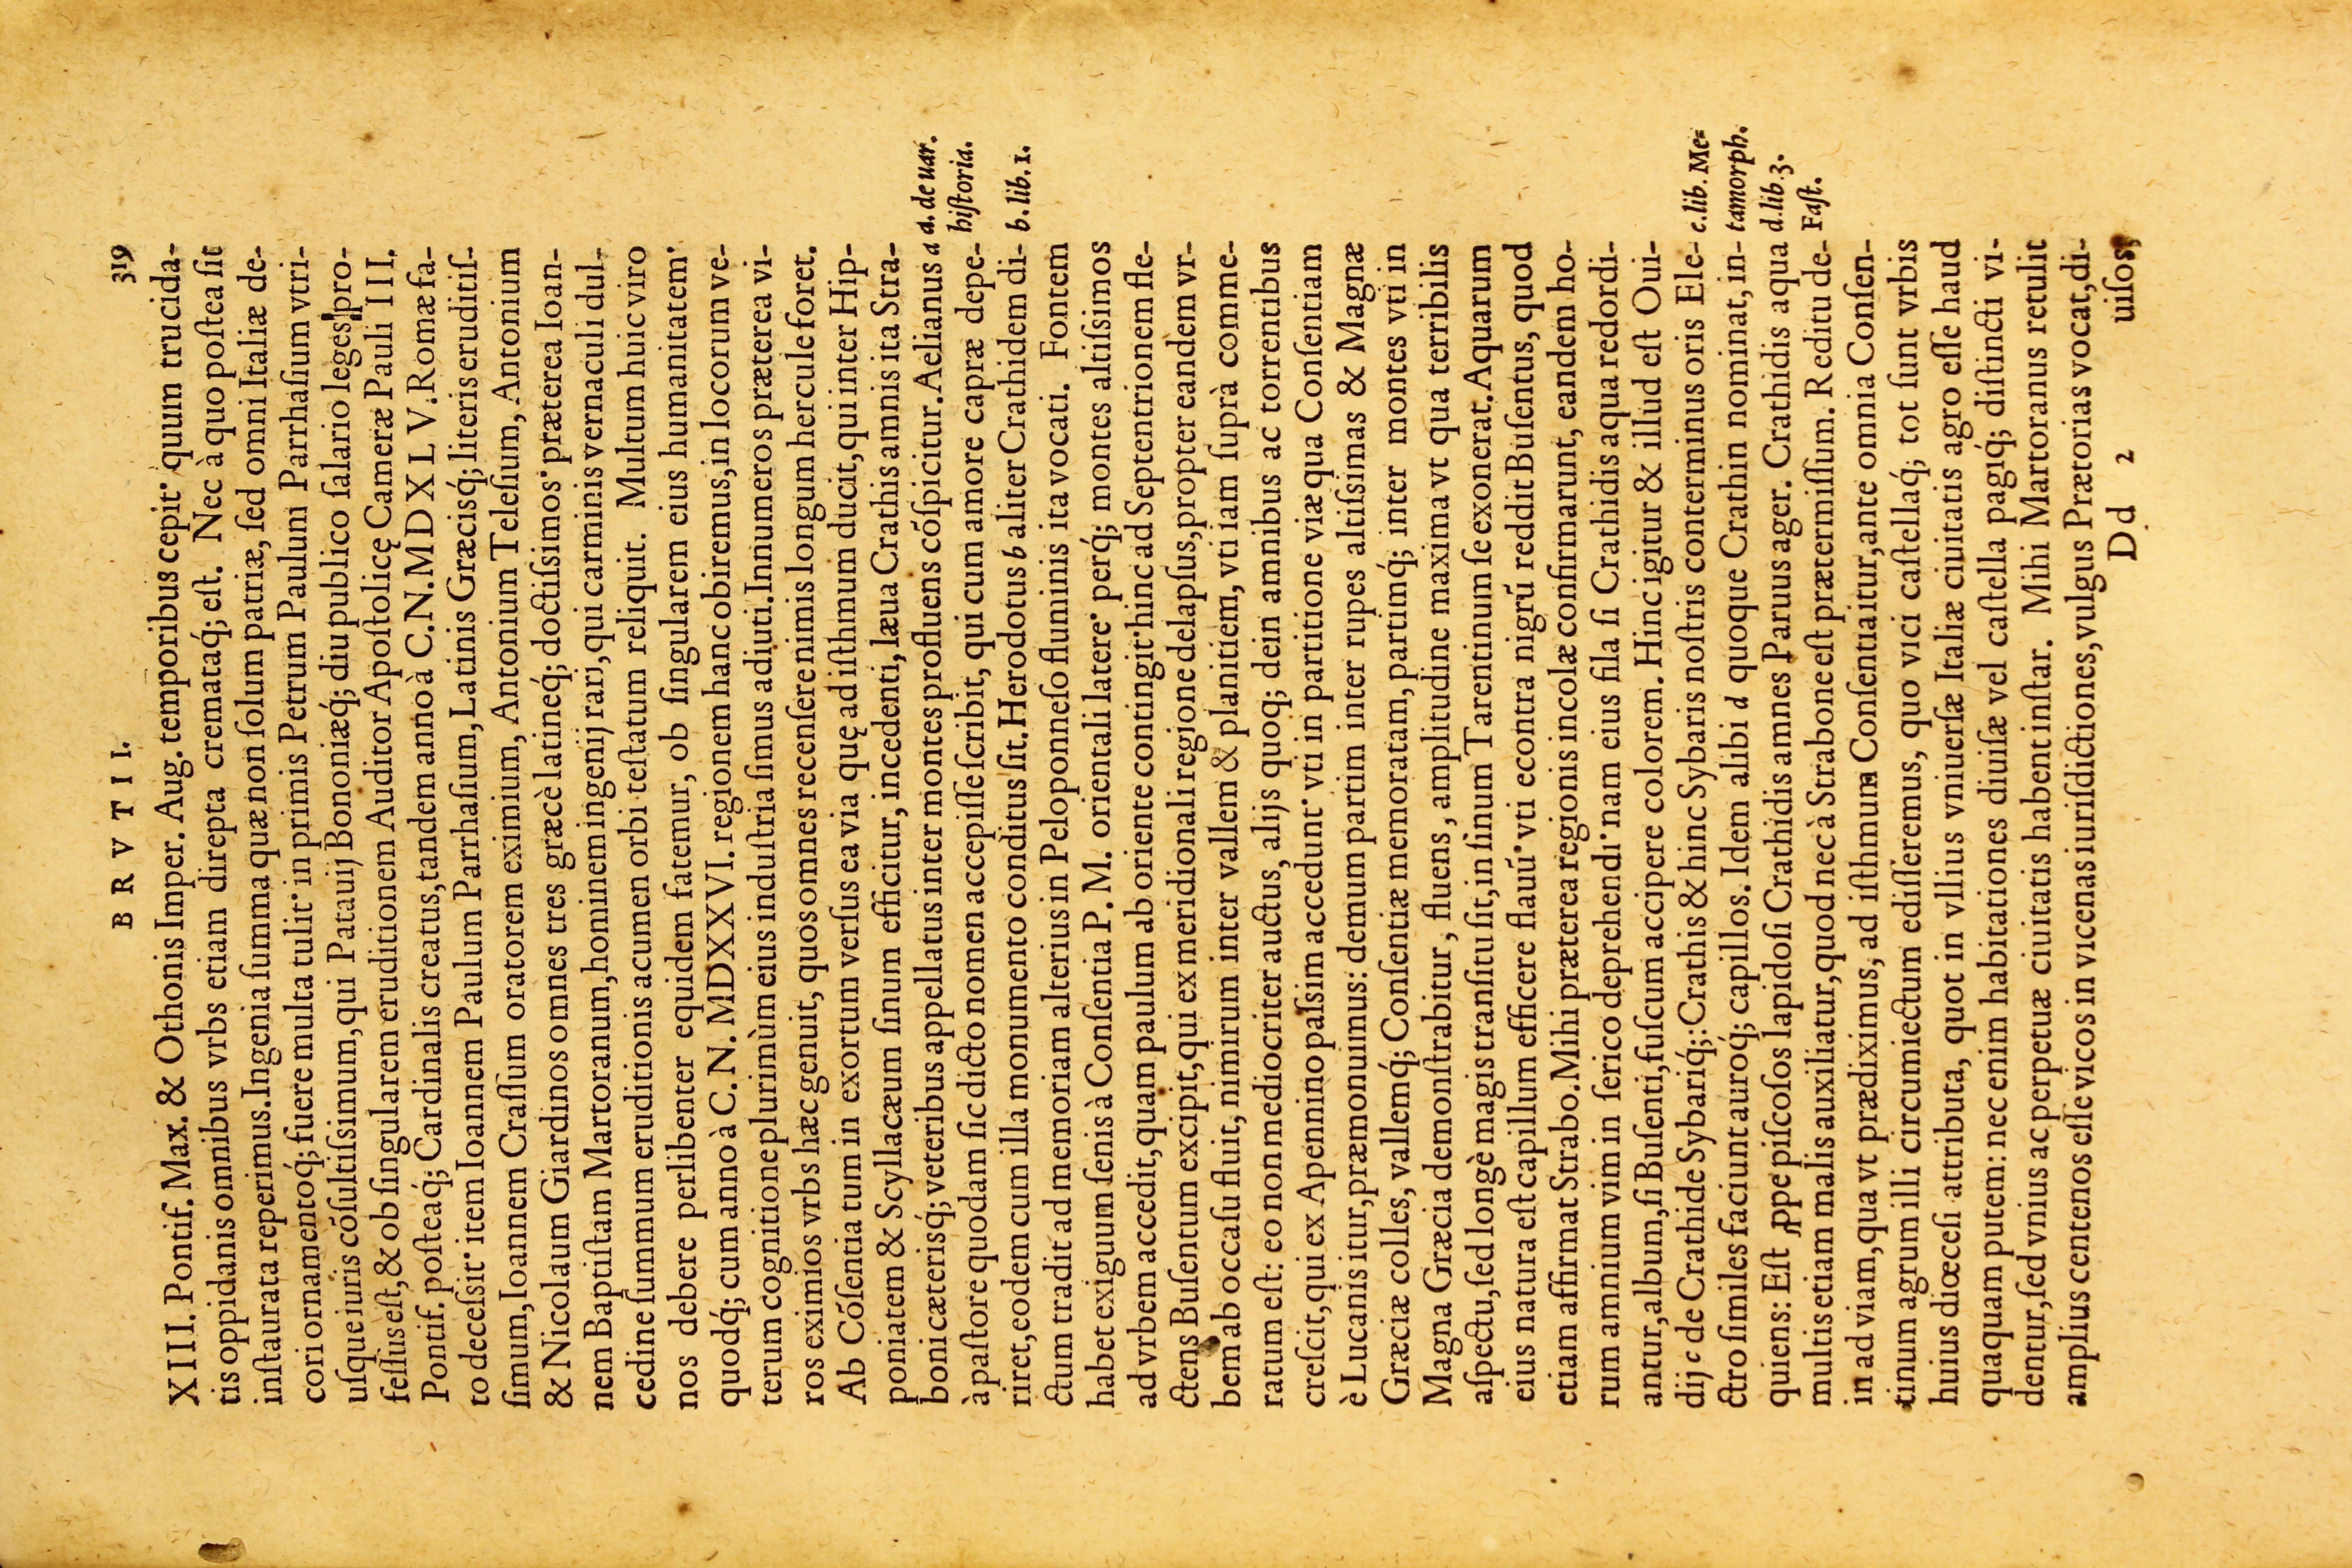 BRVTII. 319
XIII. Pontif. Max. & Othonis Imper. Aug. temporibus cepit· quum trucida-
tis oppidanis omnibus vrbs etiam direpta crematáq́; eſt. Nec à quo poſtea ſit
inſtaurata reperimus. Ingenia ſumma quæ non ſolum patriæ, ſed omni Italiæ de-
cori ornamentoq́; fuere multa tulit· in primis Petrum Paulum Parrhaſium vtri-
uſque iuris cõſultiſsimum, qui Patauij Bononiæq́; diu publico ſalario leges pro-
feſſus eſt, & ob ſingularem eruditionem Auditor Apoſtolicę Cameræ Pauli III.
Pontif. poſteaq́; Cardinalis creatus, tandem anno à C.N.MDXLV. Romæ fa-
to deceſsit· item Ioannem Paulum Parrhaſium, Latinis Græcisq́; literis eruditiſ-
ſimum, Ioannem Craſſum oratorem eximium, Antonium Teleſium, Antonium
& Nicolaum Giardinos omnes tres græcè latineq́; doctiſsimos· præterea Ioan-
nem Baptiſtam Martoranum, hominem ingenij rari, qui carminis vernaculi dul-
cedine ſummum eruditionis acumen orbi teſtatum reliquit. Multum huic viro
nos debere perlibenter equidem fatemur, ob ſingularem eius humanitatem·
quodq́; cum anno à C.N.MDXXVI. regionem hanc obiremus, in locorum ve-
terum cognitione plurimùm eius induſtria ſimus adiuti. Innumeros præterea vi-
ros eximios vrbs hæc genuit, quos omnes recenſere nimis longum hercule foret.
Ab Cõſentia tum in exortum verſus ea via quę ad iſthmum ducit, qui inter Hip-
poniatem & Scyllacæum ſinum efficitur, incedenti, læua Crathis amnis ita Stra-
boni cæterisq́; veteribus appellatus inter montes profluens cõſpicitur. Aelianus a
a. de uar.
hiſtoria.
à paſtore quodam ſic dicto nomen accepiſſe ſcribit, qui cum amore capræ depe-
riret, eodem cum illa monumento conditus ſit. Herodotus b aliter Crathidem di-
b. lib. 1.
ctum tradit ad memoriam alterius in Peloponneſo fluminis ita vocati. Fontem
habet exiguum ſenis à Conſentia P.M. orientali latere· perq́; montes altiſsimos
ad vrbem accedit, quam paulum ab oriente contingit· hinc ad Septentrionem fle-
ctens Buſentum excipit, qui ex meridionali regione delapſus, propter eandem vr-
bem ab occaſu fluit, nimirum inter vallem & planitiem, vti iam ſuprà comme-
ratum eſt: eo non mediocriter auctus, alijs quoq; dein amnibus ac torrentibus
creſcit, qui ex Apennino paſsim accedunt· vti in partitione viæ qua Conſentiam
è Lucanis itur, præmonuimus: demum partim inter rupes altiſsimas & Magnæ
Græciæ colles, vallemq́; Conſentiæ memoratam, partimq́; inter montes vti in
Magna Græcia demonſtrabitur, fluens, amplitudine maxima vt qua terribilis
aſpectu, ſed longè magis tranſitu ſit, in ſinum Tarentinum ſe exonerat. Aquarum
eius natura eſt capillum efficere flauũ· vti econtra nigrũ reddit Buſentus, quod
etiam affirmat Strabo. Mihi præterea regionis incolæ confirmarunt, eandem ho-
rum amnium vim in ſerico deprehendi· nam eius fila ſi Crathidis aqua redordi-
antur, album, ſi Buſenti, fuſcum accipere colorem. Hinc igitur & illud eſt Oui-
dij c de Crathide Sybariq́;: Crathis & hinc Sybaris noſtris conterminus oris Ele-
c. lib. Me-
tamorph.
ctro ſimiles faciunt auroq́; capillos. Idem alibi d quoque Crathin nominat, in-
d. lib. 3.
Faſt.
quiens: Eſt ꝓpe piſcoſos lapidoſi Crathidis amnes Paruus ager. Crathidis aqua
multis etiam malis auxiliatur, quod nec à Strabone eſt prætermiſſum. Reditu de-
in ad viam, qua vt prædiximus, ad iſthmum Conſentia itur, ante omnia Conſen-
tinum agrum illi circumiectum ediſſeremus, quo vici caſtellaq́; tot ſunt vrbis
huius diœceſi attributa, quot in vllius vniuerſæ Italiæ ciuitatis agro eſſe haud
quaquam putem: nec enim habitationes diuiſæ vel caſtella pagiq́; diſtincti vi-
dentur, ſed vnius ac perpetuæ ciuitatis habent inſtar. Mihi Martoranus retulit
amplius centenos eſſe vicos in vicenas iuriſdictiones, vulgus Prætorias vocat, di-
Dd 2 uiſos,